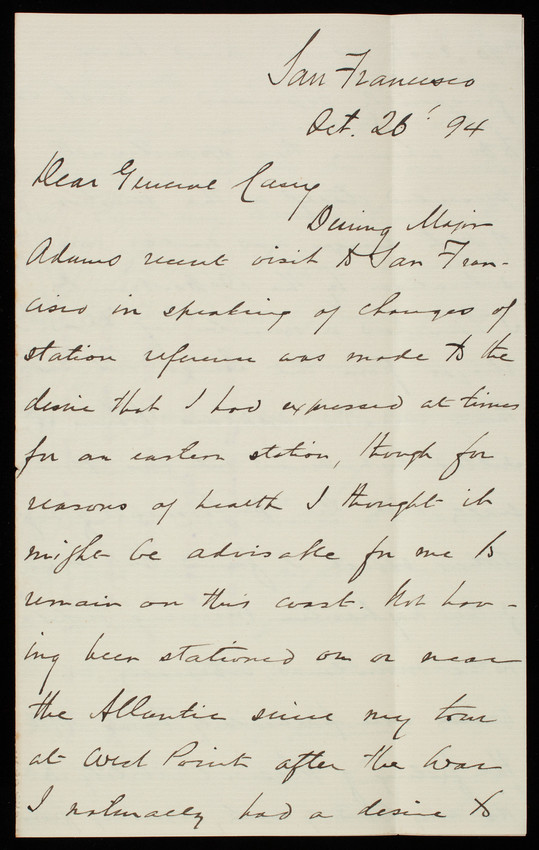 San Francisco
Oct. 26' 94
Dear General Casey
During Major
Adams recent visit to San Fran-
cisco in speaking of changes of
station reference was made to the
desire that I had expressed at times
for an eastern station, though for
reasons of health I thought it
might be advisable for me to
remain on this coast. Not hav-
ing been stationed on or near
the Atlantic since my tour
at West Point after the War
I naturally had a desire to